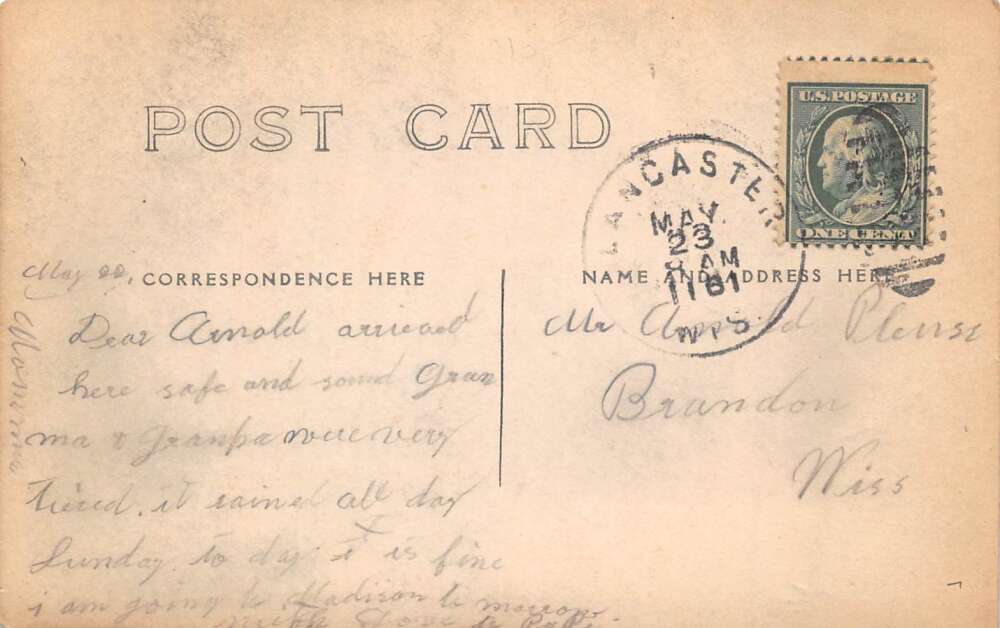 POST CARD
U.S. POSTAGE
ONE CENT
LANCASTER
MAY
23
8 AM
1911
WIS
May 22,
CORRESPONDENCE HERE
NAME AND ADDRESS HERE
Dear Arnold arrieved
here safe and sound Gran
ma & Granpa were very
tiered. it rained all day
Sunday to day it is fine
i am going to Madison to morrow
with Love to Papa
Mamma
Mr Arnold
Brandon
Wiss